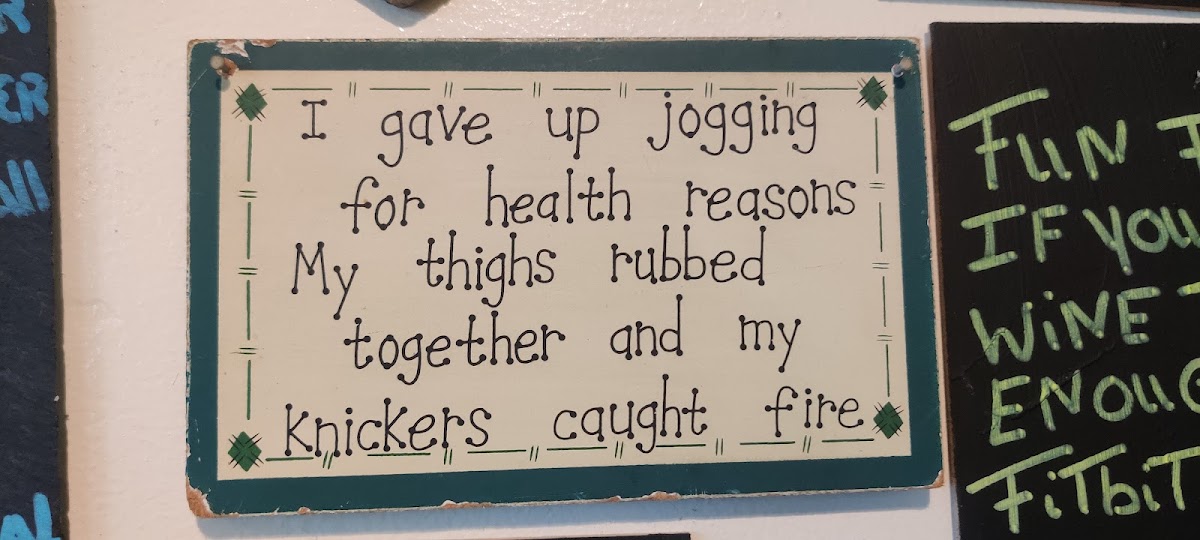 I gave up jogging
for health reasons
My thighs rubbed
together and my
knickers caught fire
FUN
IF YOU
WINE
FiTbiT